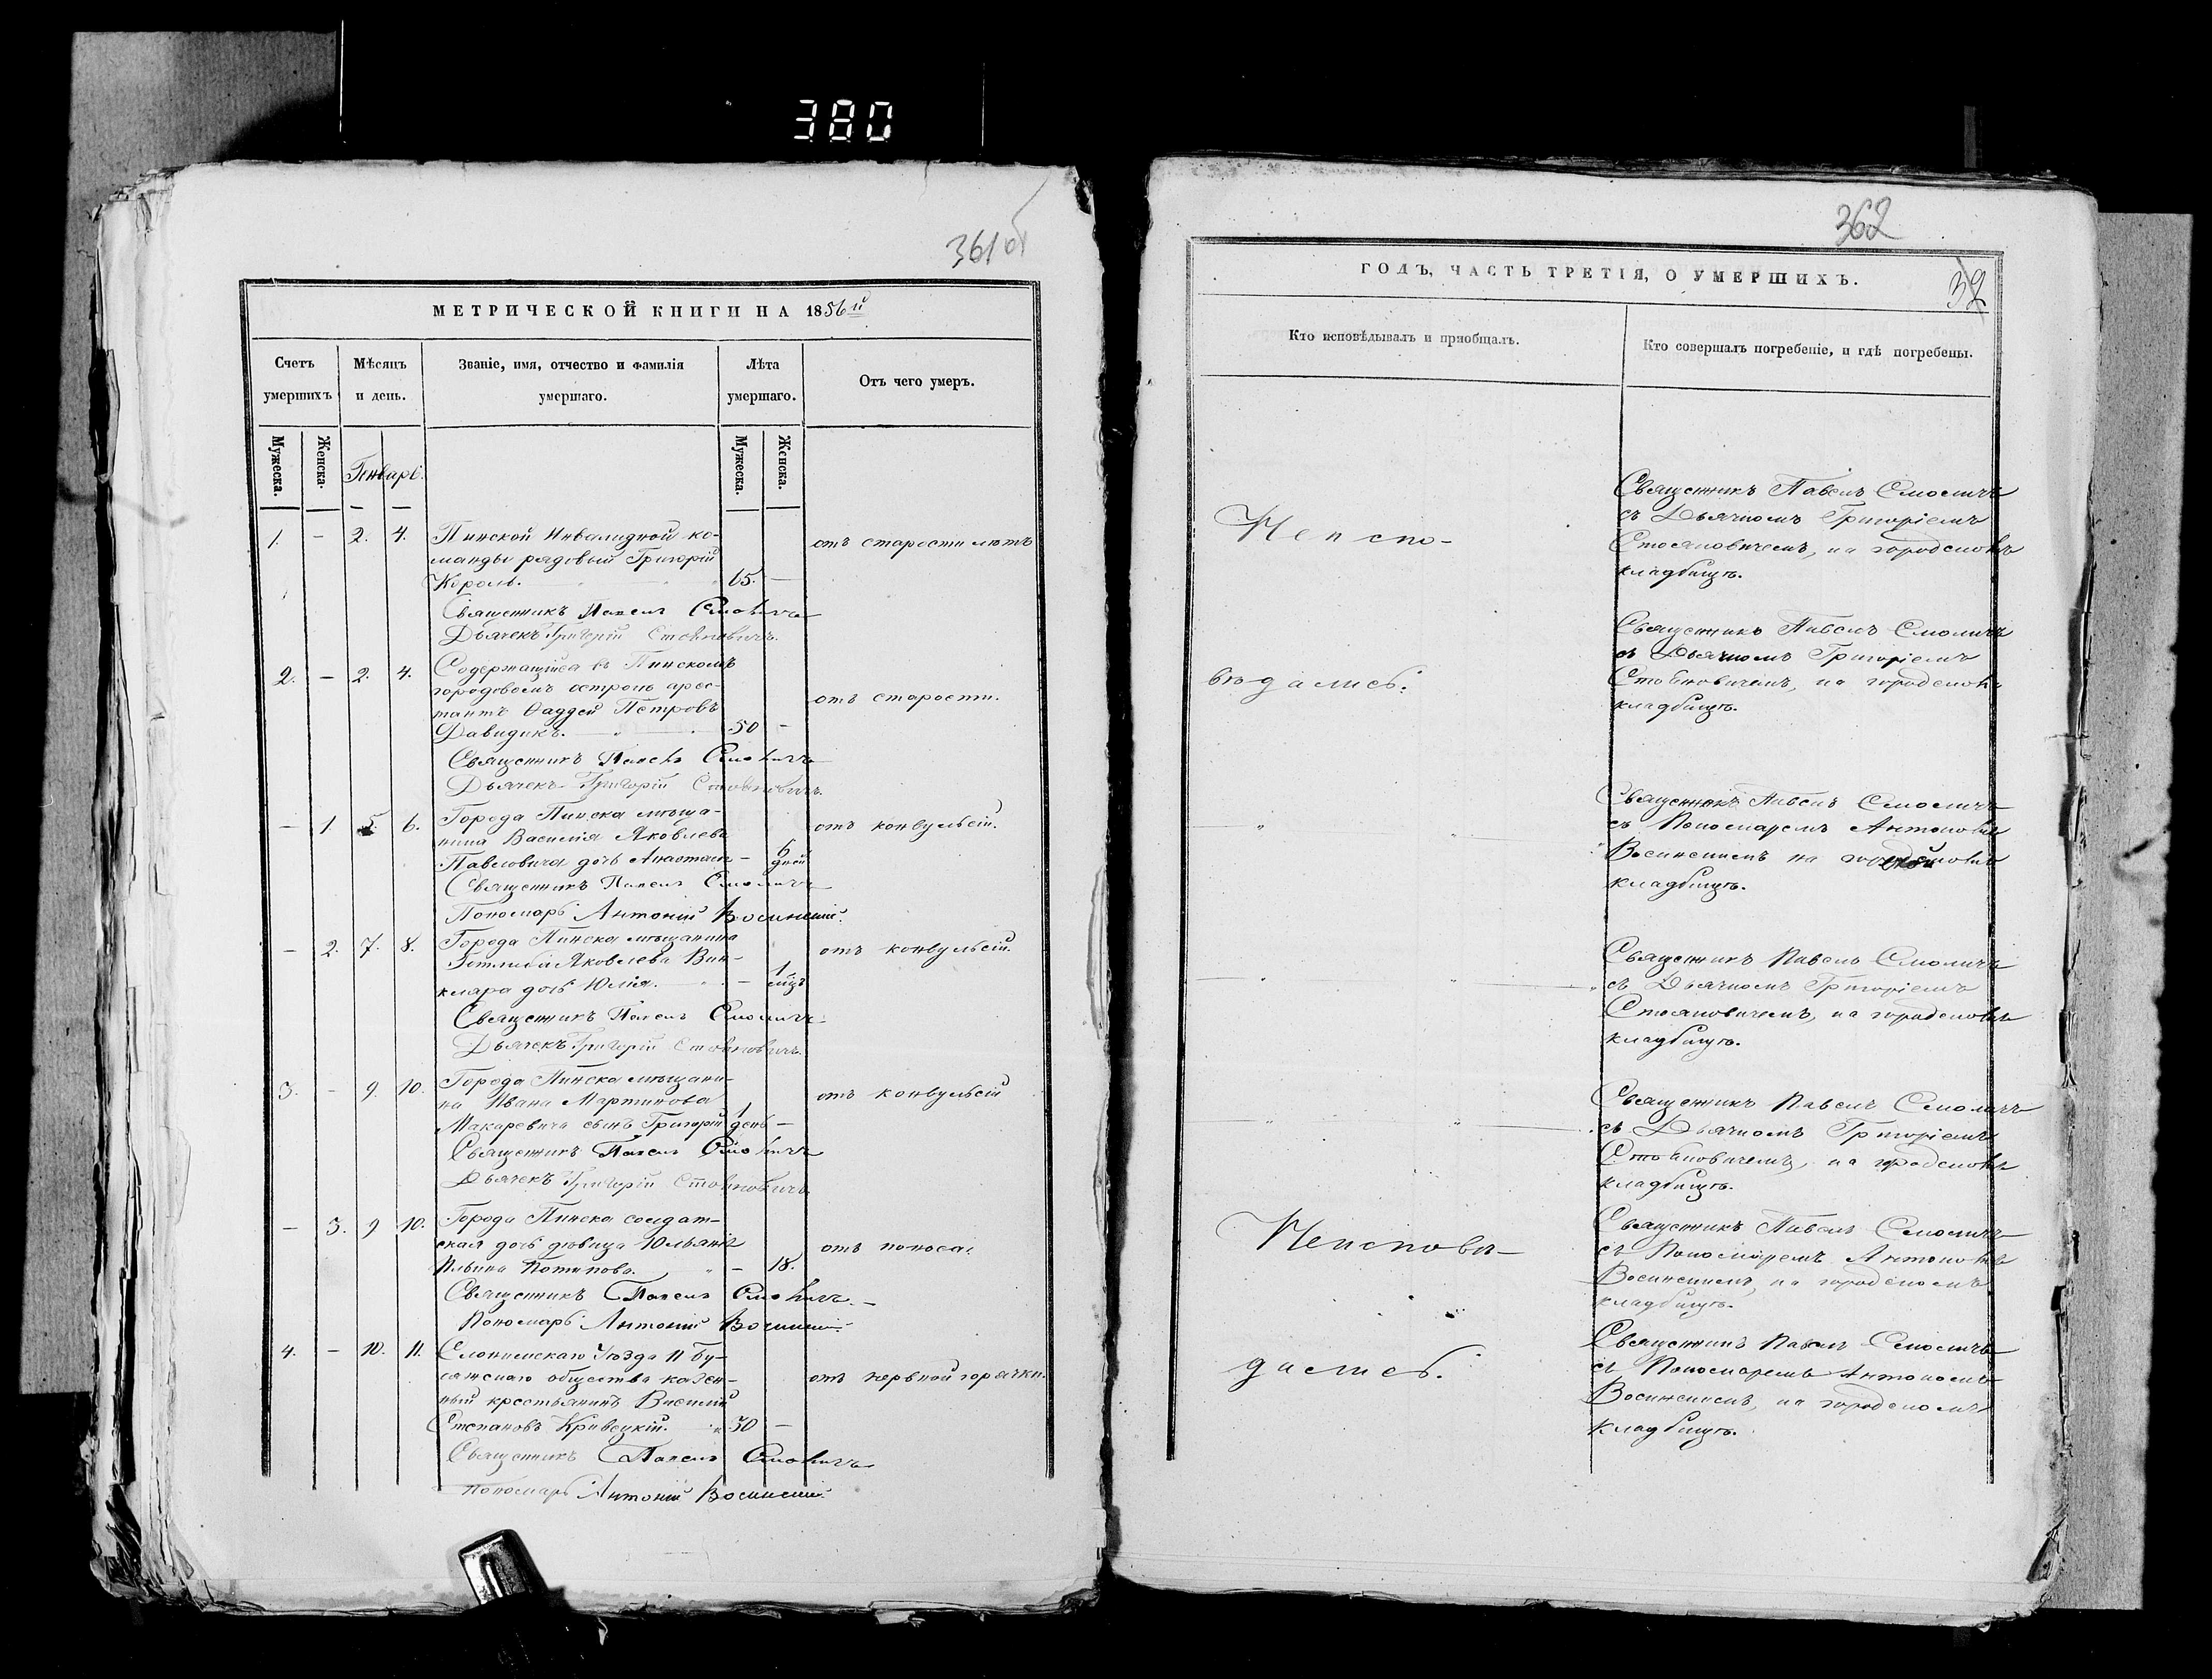 380
361об
МЕТРИЧЕСКОЙ КНИГИ НА 1856й
Счетъ умершихъ
Мѣсяцъ и день.
Званіе, имя, отчество и фамилія умершаго.
Лѣта умершаго.
Отъ чего умеръ.
Мужеска.
Женска.
Январь.
Мужеска.
Женска.
1. — 2. 4. Пинской Инвалидной ко-
манды рядовый Григорій
Король. 65. —
отъ старости лѣтъ
Священникъ Павелъ Смоличъ
Дьячекъ Григорій Стояновичъ.
2. — 2. 4. Содержащійся въ Пинскомъ
городовомъ острогѣ арес-
тантъ Фаддей Петровъ
Давидикъ. 50 —
отъ старости.
Священникъ Павелъ Смоличъ
Дьячекъ Григорій Стояновичъ.
— 1. 5. 6. Города Пинска мѣща-
нина Василія Яковлева
Павловича дочь Анастасія — 5 дней
отъ конвульсій.
Священникъ Павелъ Смоличъ
Пономарь Антоній
— 2. 7. 8. Города Пинска мѣщанина
Готлиба Яковлева Вин-
клера дочь Юлія. — 1 мцъ
отъ конвульсій.
Священникъ Павелъ Смоличъ
Дьячекъ Григорій Стояновичъ.
3. — 9. 10. Города Пинска мѣщани-
на Ивана Мартинова
Макаревича сынъ Григорій 1 день —
отъ конвульсій
Священникъ Павелъ Смоличъ
Дьячекъ Григорій Стояновичъ.
— 3. 9 10. Города Пинска солдат-
ская дочь дѣвица Юльянія
Ильина Потапова. — 18.
отъ поноса.
Священникъ Павелъ Смоличъ.
Пономарь Антоній
4. — 10. 11. Слонимскаго Уѣзда
общества казен-
ный крестьянинъ Василій
Степановъ Кривецкій. 30 —
отъ нервной горячки.
Священникъ Павелъ Смоличъ
Пономарь Антоній
362
ГОДЪ, ЧАСТЬ ТРЕТІЯ, О УМЕРШИХЪ.
39
Кто исповѣдывалъ и пріобщалъ.
Кто совершалъ погребеніе, и гдѣ погребены.
Неиспо-
вѣдались.
Священникъ Павелъ Смоличъ
съ Дьячкомъ Григоріемъ
Стояновичемъ, на городскомъ
кладбищѣ.
Священникъ Павелъ Смоличъ
съ Дьячкомъ Григоріемъ
Стояновичемъ, на городскомъ
кладбищѣ.
Священникъ Павелъ Смоличъ
съ Пономаремъ Антоніемъ
на городскомъ
кладбищѣ.
Священникъ Павелъ Смоличъ
съ Дьячкомъ Григоріемъ
Стояновичемъ, на городскомъ
кладбищѣ.
Священникъ Павелъ Смоличъ
съ Дьячкомъ Григоріемъ
Стояновичемъ, на городскомъ
кладбищѣ.
Неисповѣ-
дались.
Священникъ Павелъ Смоличъ
съ Пономаремъ Антоніемъ
на городскомъ
кладбищѣ.
Священникъ Павелъ Смоличъ
съ Пономаремъ Антоніемъ
на городскомъ
кладбищѣ.